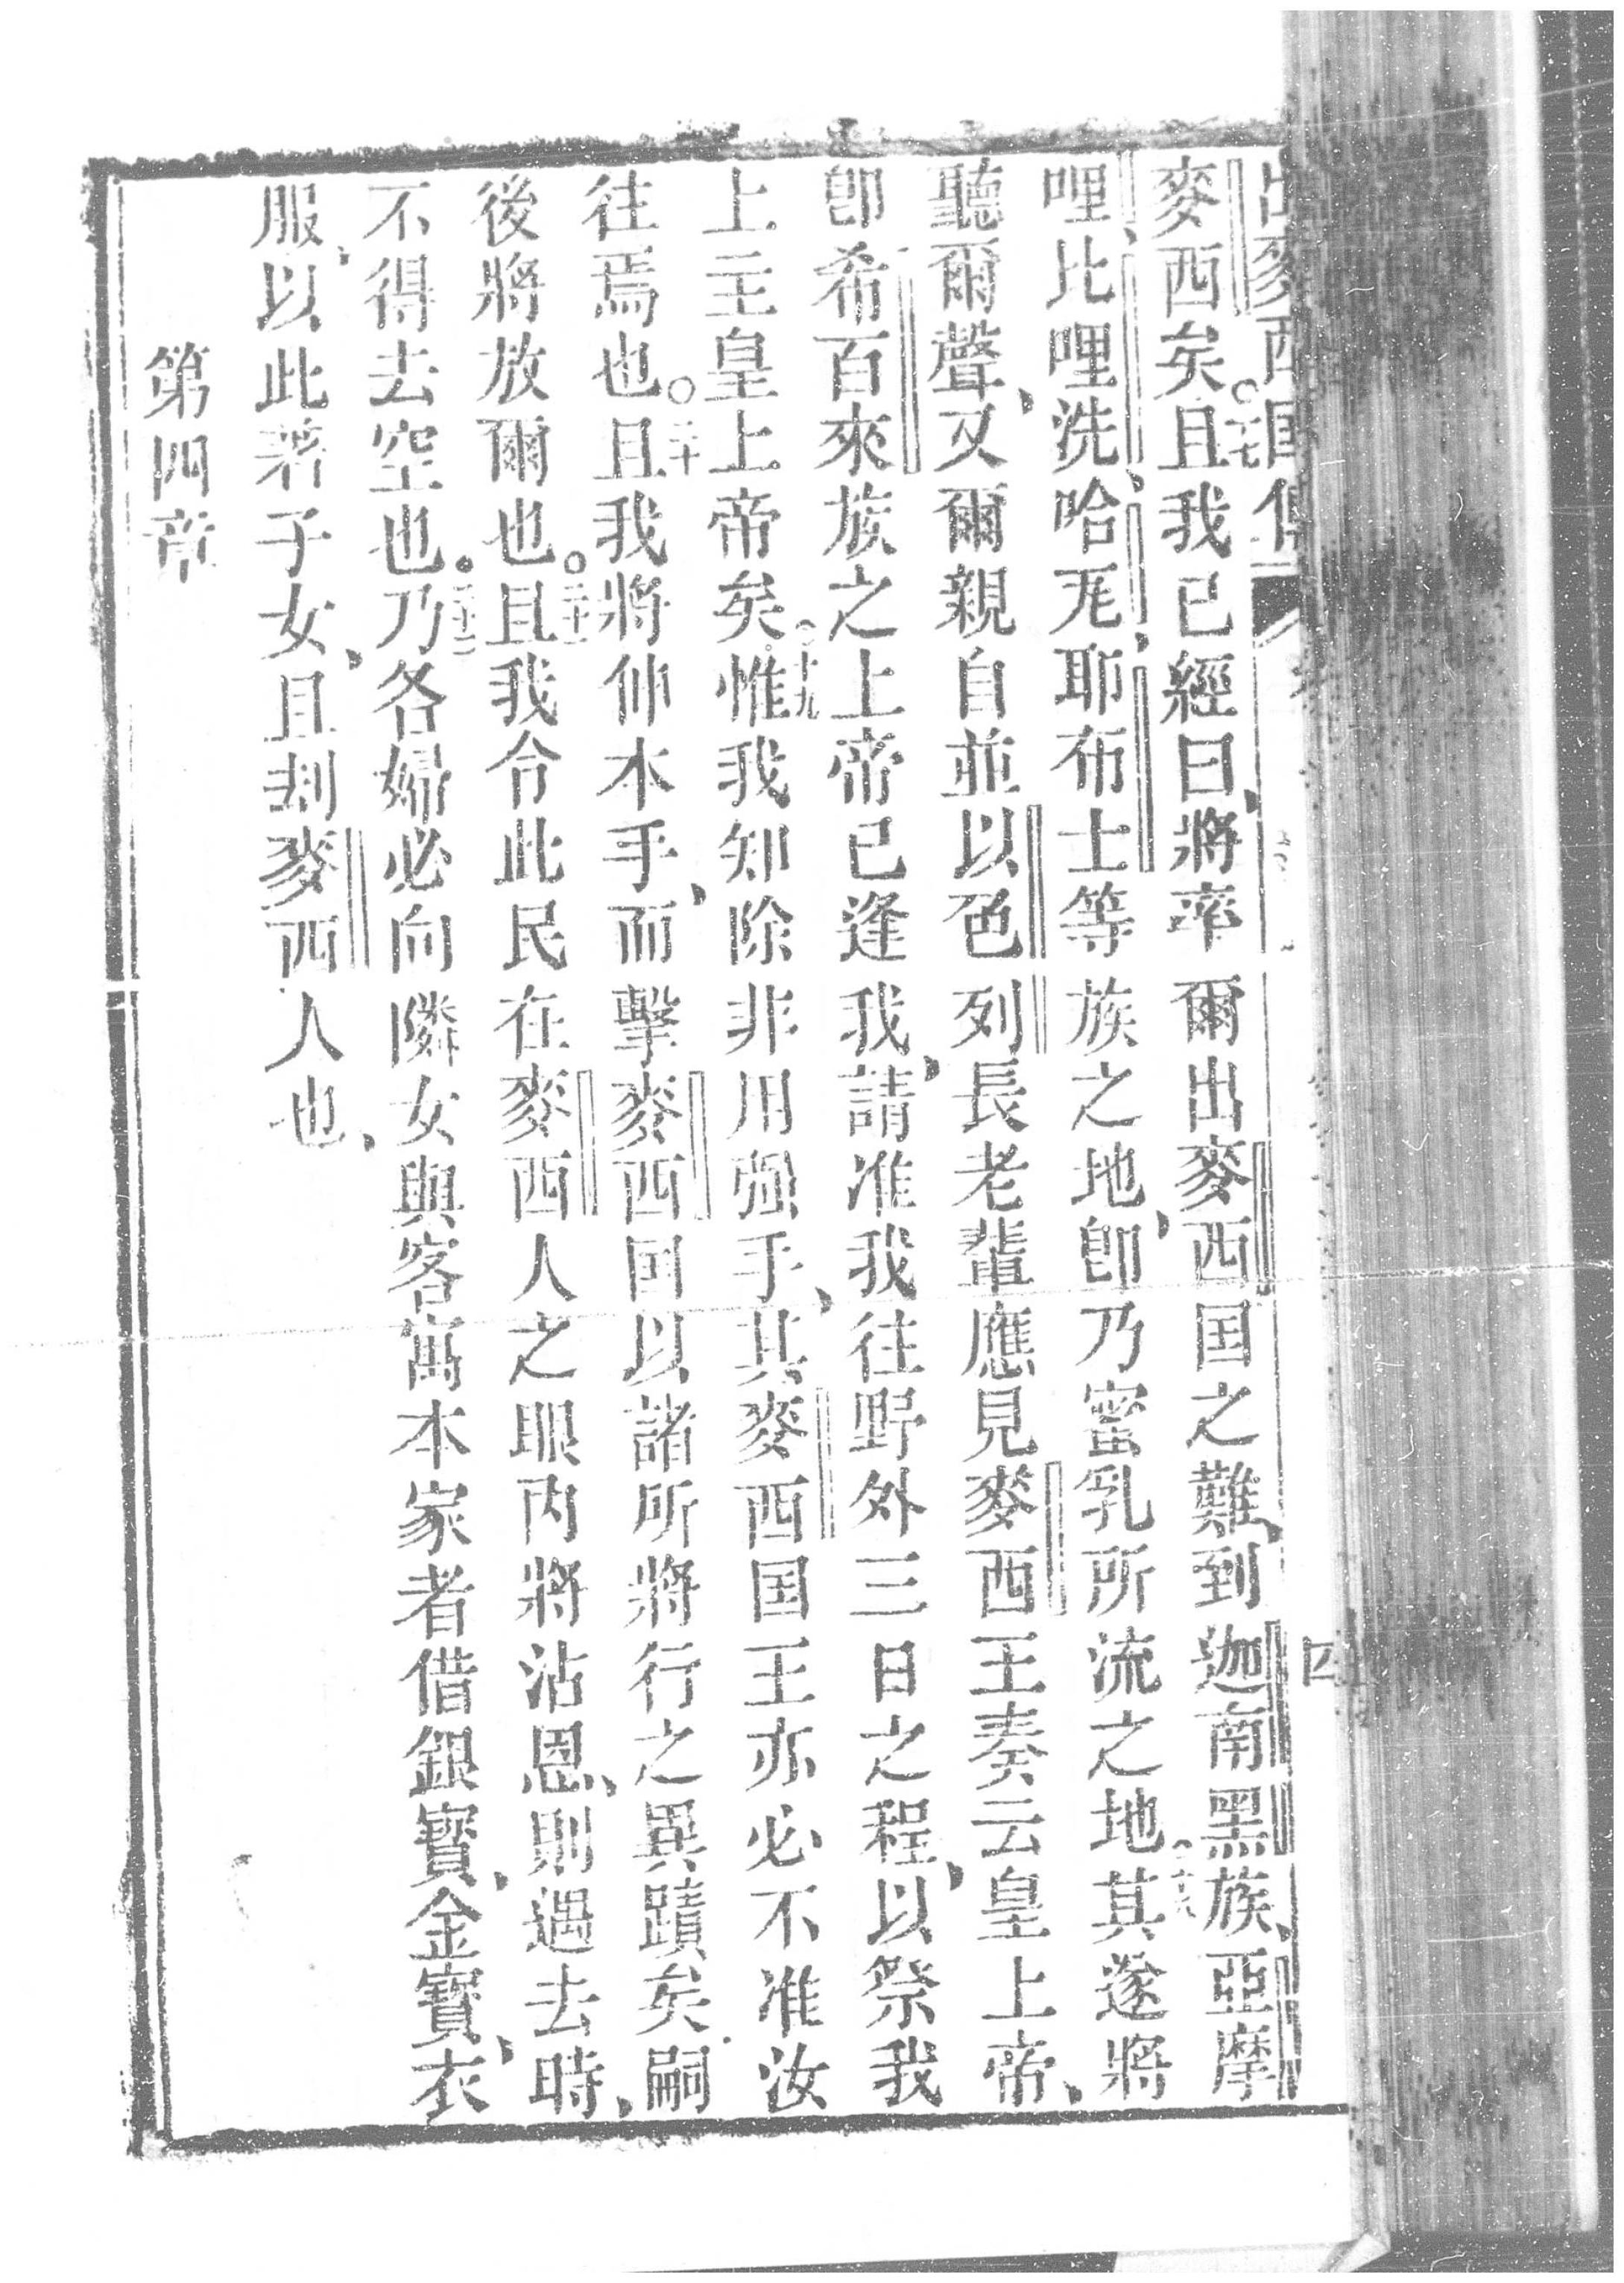 出麥西國傳
四
麥西矣。十七且我已經曰、將率爾出麥西国之難、到迦南黑族、亞摩
哩、比哩洗、哈𠀾、耶布士等族之地、卽乃蜜乳所流之地。十八其遂將
聽爾聲、又爾親自並以色列長老輩應見麥西王奏云、皇上帝、
卽希百來族之上帝已逢我、請准我往野外三日之程、以祭我
上主皇上帝矣。十九惟我知除非用强手、其麥西国王亦必不准汝
往焉也。二十且我將伸本手、而擊麥西国以諸所將行之異蹟矣、嗣
後將放爾也。二十一且我令此民在麥西人之眼内將沾恩、則遇去時、
不得去空也。二十二乃各婦必向隣女與客寓本家者借銀寶、金寶、衣
服、以此著子女、且刦麥西人也、
第四章